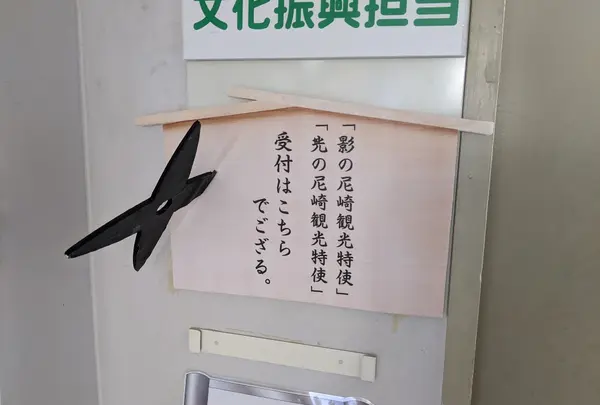 文化振興担当
「影の尼崎観光特使」
「光の尼崎観光特使」
受付はこちら
でござる。